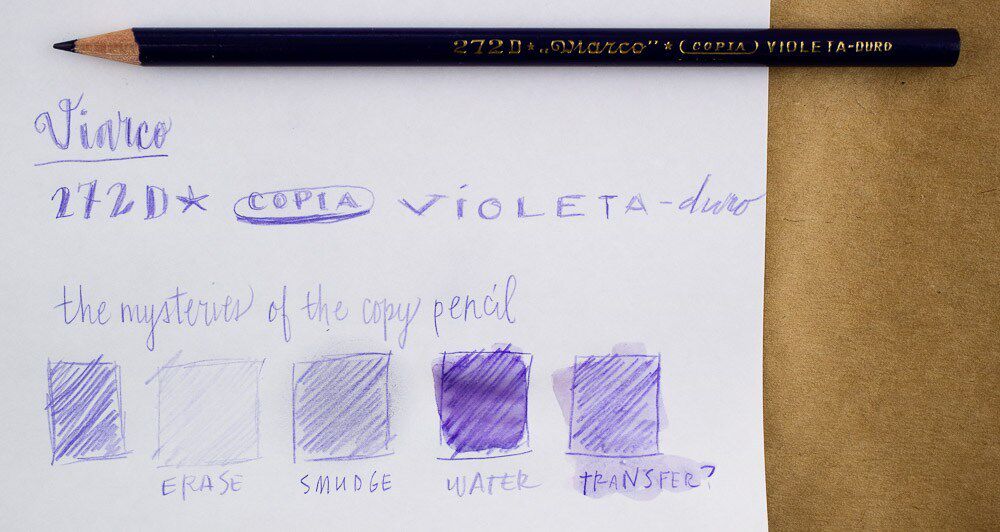 272D ★ „Viarco" ★ (COPIA) VIOLETA-DURO
Viarco
272D★ COPIA VIOLETA-duro
the mysteries of the copy pencil
ERASE SMUDGE WATER TRANSFER?